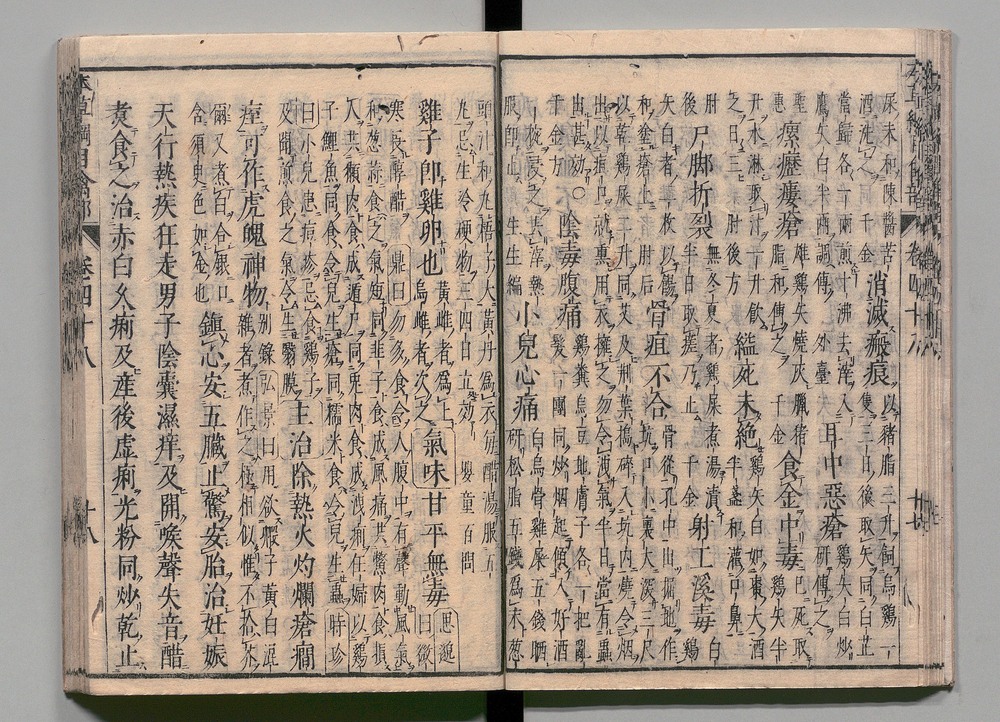 尿末和陳醬苦
酒洗之千金 消滅瘢痕 以豬脂三升飼烏鷄一
隻三日後取矢同白芷
當歸各一兩煎十沸去滓入
鷹矢白半兩調傅 外臺 耳中惡瘡 鷄矢白炒
研傅之
聖惠 瘰癧瘻瘡 雄鷄矢燒灰臘豬
脂和傅之 千金 食金中毒 已死取
鷄矢半
升水淋取汁一升飲
之日三 肘後方 縊死未絕 鷄矢白如棗大酒
半盞和灌口鼻
肘後 尸脚折裂 無冬夏者鷄屎煮湯漬
半日取瘥乃止 千金 射工溪毒 白鷄
矢白者二枚以
和塗瘡上 肘后 骨疽不合 骨從孔中出掘地作
坑口小裏大深三尺
以乾鷄屎二升同艾及荆葉搗碎入坑内燒令烟
出以疽口就熏用衣擁之勿令洩氣半日當有蟲
出甚効 ○ 陰毒腹痛 鷄糞烏豆地膚子各一把亂
髮一團同炒烟起傾入好酒
一椀浸之熱
服即止 生生編 小兒心痛 白烏骨鷄屎五錢晒
研松脂五錢爲末葱
頭汁和丸梧子大黃丹爲衣每醋湯服五
丸忌生冷硬物三四日立効 嬰童百問
雞子即雞卵也 黃雌者爲上
烏雌者次之 氣味甘平無毒 思邈
曰微
寒畏醇醋 鼎曰勿多食令人腹中有聲動風氣
和葱蒜食之氣短同韭子食成風痛共鱉肉食損
人共獺肉食成遁尸同兎肉食成洩痢妊婦以鷄
子鯉魚同食令兒生瘡同糯米食令兒生蟲 時珍
曰小兒患痘疹忌食鷄子
及聞煎食之氣令生翳膜 主治除熱火灼爛瘡癇
痓可作虎魄神物 弘景曰用欲毈子黃白混
別錄 雜者煮作之極相似惟不拾芥
爾又煮白合銀口
含須臾色如金也 鎮心安五臟止驚安胎治妊娠
天行熱疾狂走男子陰囊濕痒及開喉聲失音醋
煮食之治赤白久痢及産後虛痢光粉同炒乾止
卷四十八
十八